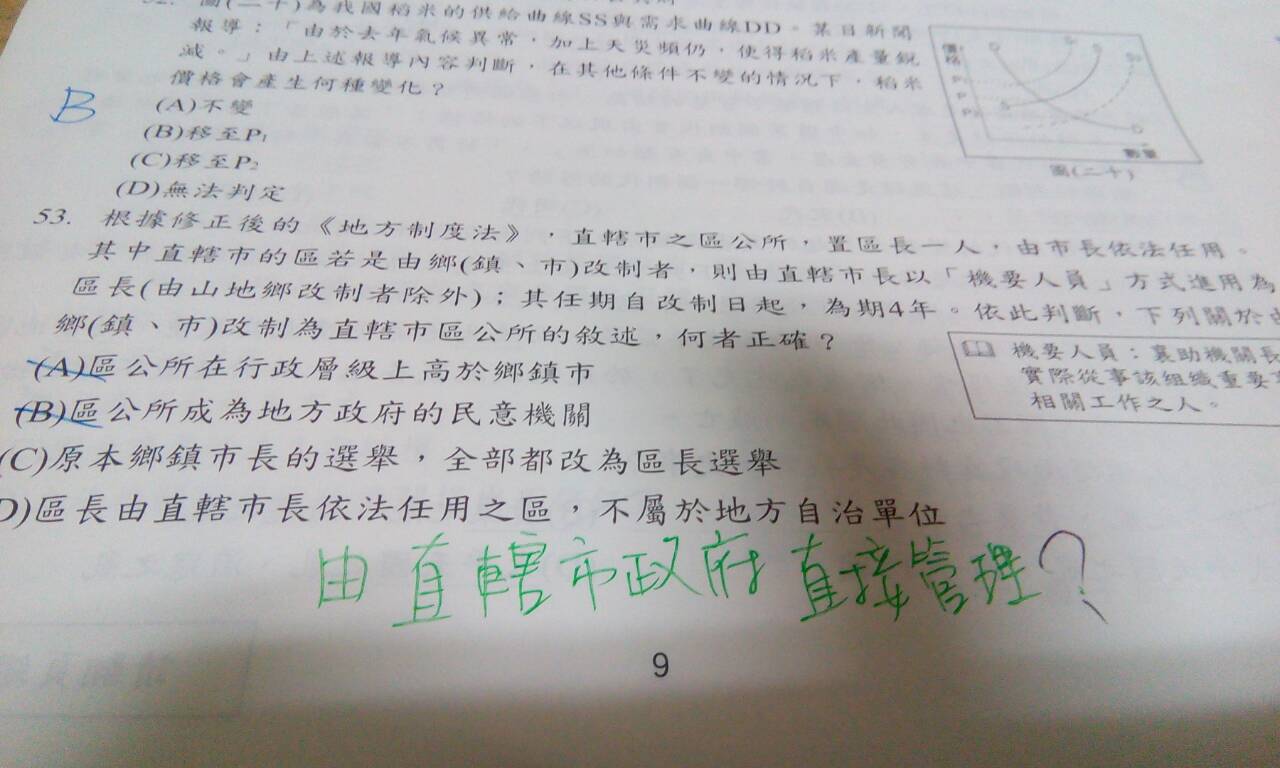 52. 圖(二十)為我國稻米的供給曲線SS與需求曲線DD。某日新聞
報導：「由於去年氣候異常，加上天災頻仍，使得稻米產量銳
減。」由上述報導內容判斷，在其他條件不變的情況下，稻米
價格會產生何種變化？
B
(A)不變
(B)移至P₁
(C)移至P₂
(D)無法判定
價格
D
S
P
P₂
S
D
數量
圖(二十)
53. 根據修正後的《地方制度法》，直轄市之區公所，置區長一人，由市長依法任用。
其中直轄市的區若是由鄉(鎮、市)改制者，則由直轄市長以「機要人員」方式進用為
區長(由山地鄉改制者除外)；其任期自改制日起，為期4年。依此判斷，下列關於由
鄉(鎮、市)改制為直轄市區公所的敘述，何者正確？
(A)區公所在行政層級上高於鄉鎮市
(B)區公所成為地方政府的民意機關
(C)原本鄉鎮市長的選舉，全部都改為區長選舉
D)區長由直轄市長依法任用之區，不屬於地方自治單位
機要人員：襄助機關長
實際從事該組織重要事
相關工作之人。
由直轄市政府直接管理？
9